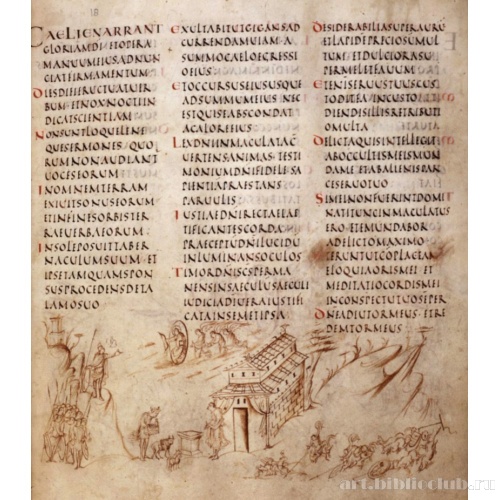 CAELIENARRANT
GLORIAMDIETOPERA
MANUUMEIUSADNUN
CIATFIRMAMENTUM
DIESDIEIERUCTUATUER
BUM·ETNOXNOCTIIN
DICATSCIENTIAM
NONSUNTLOQUELENE
QUESERMONES·QUO
RUMNONAUDIANT
UOCESEORUM
INOMNEMTERRAM
EXIUITSONUSEORUM
ETINFINESORBISTER
RAEUERBAEORUM
INSOLEPOSUITTABER
NACULUMSUUM·ET
IPSETAMQUAMSPON
SUSPROCEDENSDETA
LAMOSUO
EXULTABITUTGIGANSAD
CURRENDAMUIAM·A
SUMMOCAELOEGRESSI
OEIUS
ETOCCURSUSEIUSUSQUE
ADSUMMUMEIUS·NEC
ESTQUISEABSCONDAT
ACALOREEIUS
LEXDNIINMACULATAC̄
UERTENSANIMAS·TESTI
MONIUMDNIFIDELE·SA
PIENTIAPRAESTANS
PARUULIS
IUSTITIAEDNIRECTAELAE
TIFICANTESCORDA·
PRAECEPTŪDNILUCIDŪ
INLUMINANSOCULOS
TIMORDNISC̄SPERMA
NENSINSAECULŪSAECULI
IUDICIADIUERAIUSTIFI
CATAINSEMETIPSA
DESIDERABILIASUPERAURŪ
ETLAPIDĒPRECIOSUMMUL
TUM·ETDULCIORASU
PERMELETFAUUM
ETENIMSERUUSTUUSCUS
TODITEA·INCUSTO
DIENDISILLISRETRIBUTI
OMULTA
DELICTAQUISINTELLEGIT
ABOCCULTISMEISMUN
DAME·ETABALIENISPAR
CESERUOTUO
SIMEINONFUERINTDOMI
NATITUNCINMACULATUS
ERO·ETEMUNDABOR
ADELICTOMAXIMO
ETERUNTUTCŌPLACEAN̄T
ELOQUIAORISMEI·ET
MEDITATIOCORDISMEI
INCONSPECTUTUOSĒPER
DNEADIUTORMEUS·ETRE
DEMTORMEUS
art.biblioclub.ru